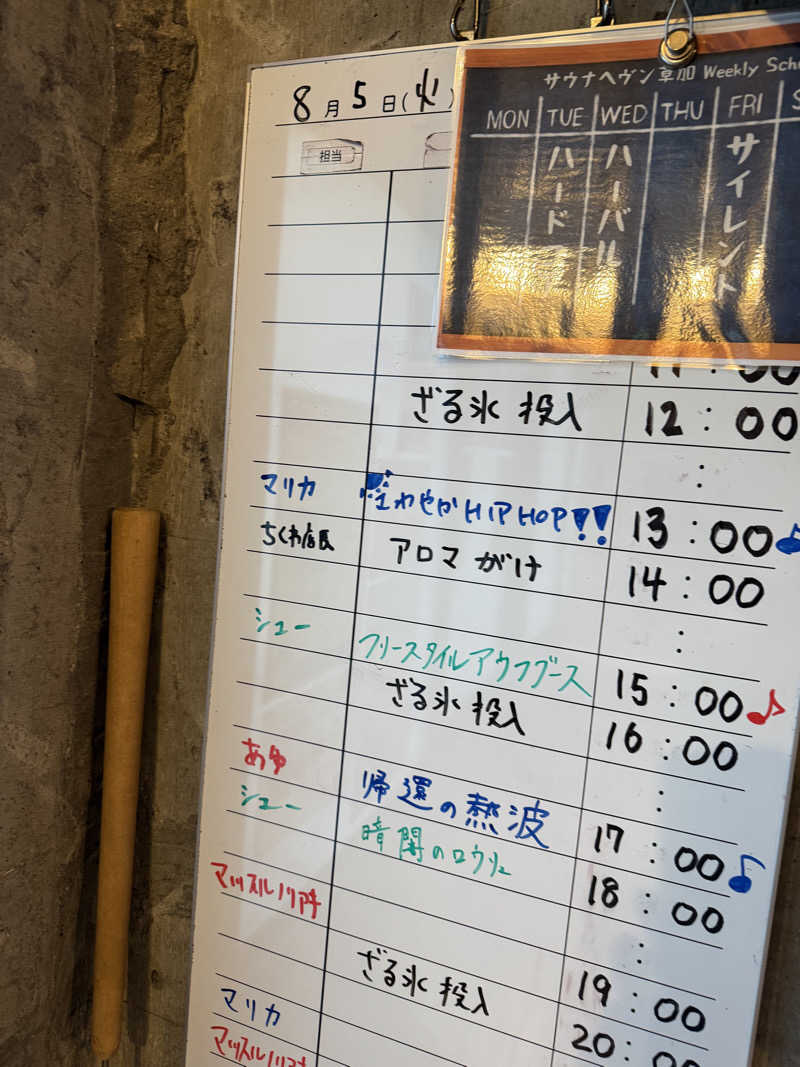 8月5日(火)
サウナヘヴン草加 Weekly Sch
MON TUE WED THU FRI S
ハード
ハーバル
サイレント
担当
ざる氷 投入 12:00
:
マリカ わせか HIPHOP!! 13:00♪
ちくわ店長 アロマがけ 14:00
:
シュー フリースタイルアウフグース 15:00♪
ざる氷 投入 16:00
:
あゆ 帰還の熱波 17:00♪
シュー 暗闇のロウリュ 18:00
:
マッスルノリアキ 19:00
ざる氷 投入 20:00
マリカ
マッスルノリアキ